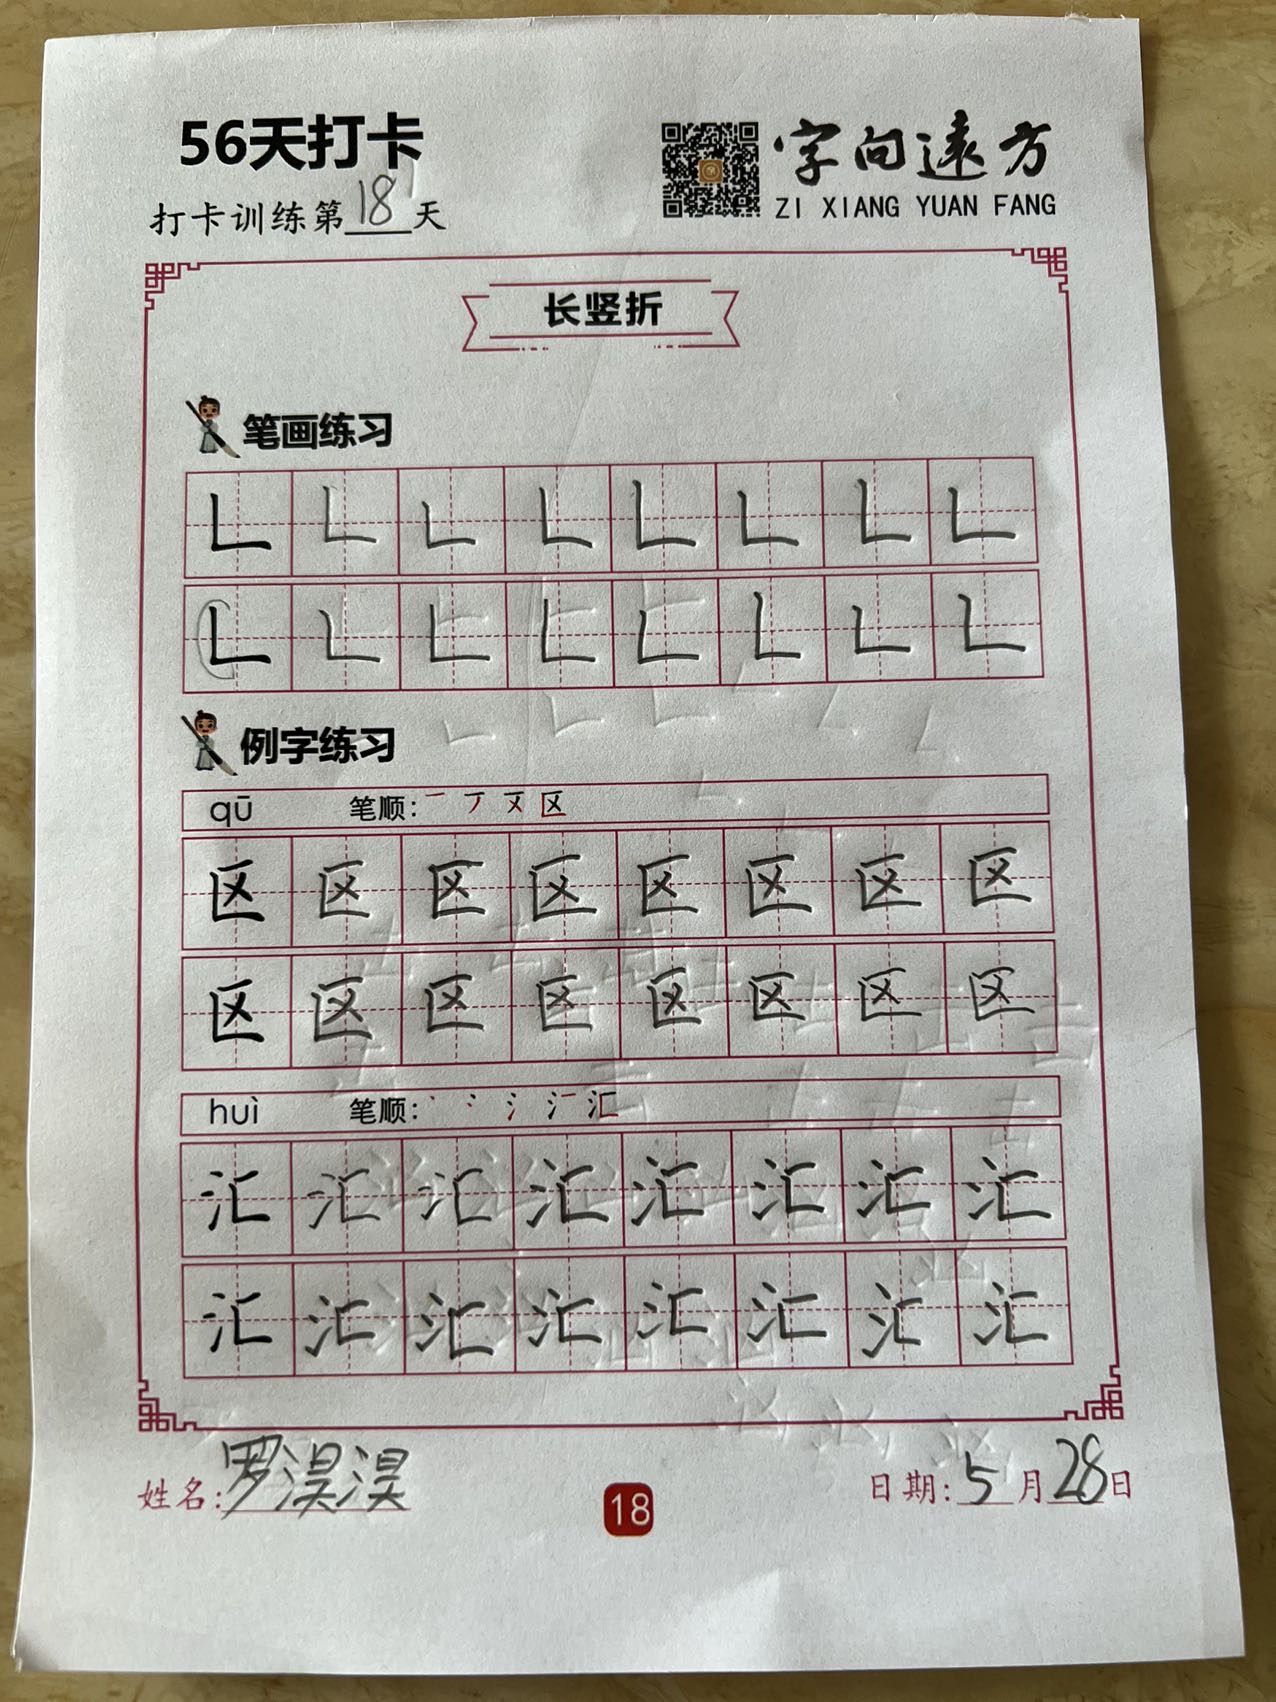 56天打卡
字向远方
ZI XIANG YUAN FANG
打卡训练第18天
长竖折
笔画练习
𠃊 𠃊 𠃊 𠃊 𠃊 𠃊 𠃊 𠃊
𠃊 𠃊 𠃊 𠃊 𠃊 𠃊 𠃊 𠃊
例字练习
qū 笔顺: 一 丆 又 区
区 区 区 区 区 区 区 区
区 区 区 区 区 区 区 区
huì 笔顺: 丶 冫 氵 汇
汇 汇 汇 汇 汇 汇 汇 汇
汇 汇 汇 汇 汇 汇 汇 汇
姓名:罗淏淏
日期:5月28日
18